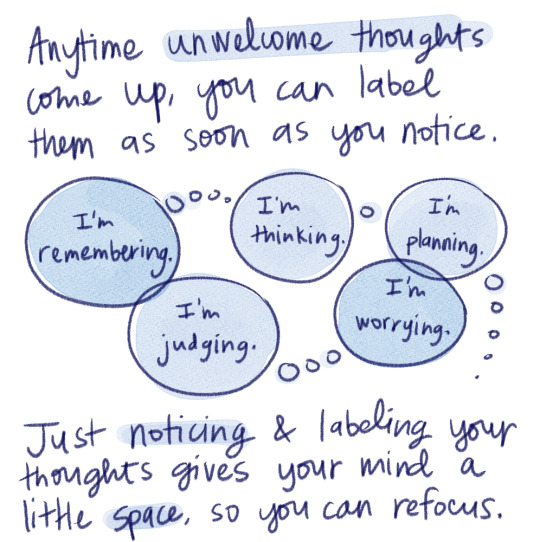 Anytime unwelcome thoughts
come up, you can label
them as soon as you notice.
I'm
remembering.
I'm
thinking.
I'm
planning.
I'm
judging.
I'm
worrying.
Just noticing & labeling your
thoughts gives your mind a
little space, so you can refocus.